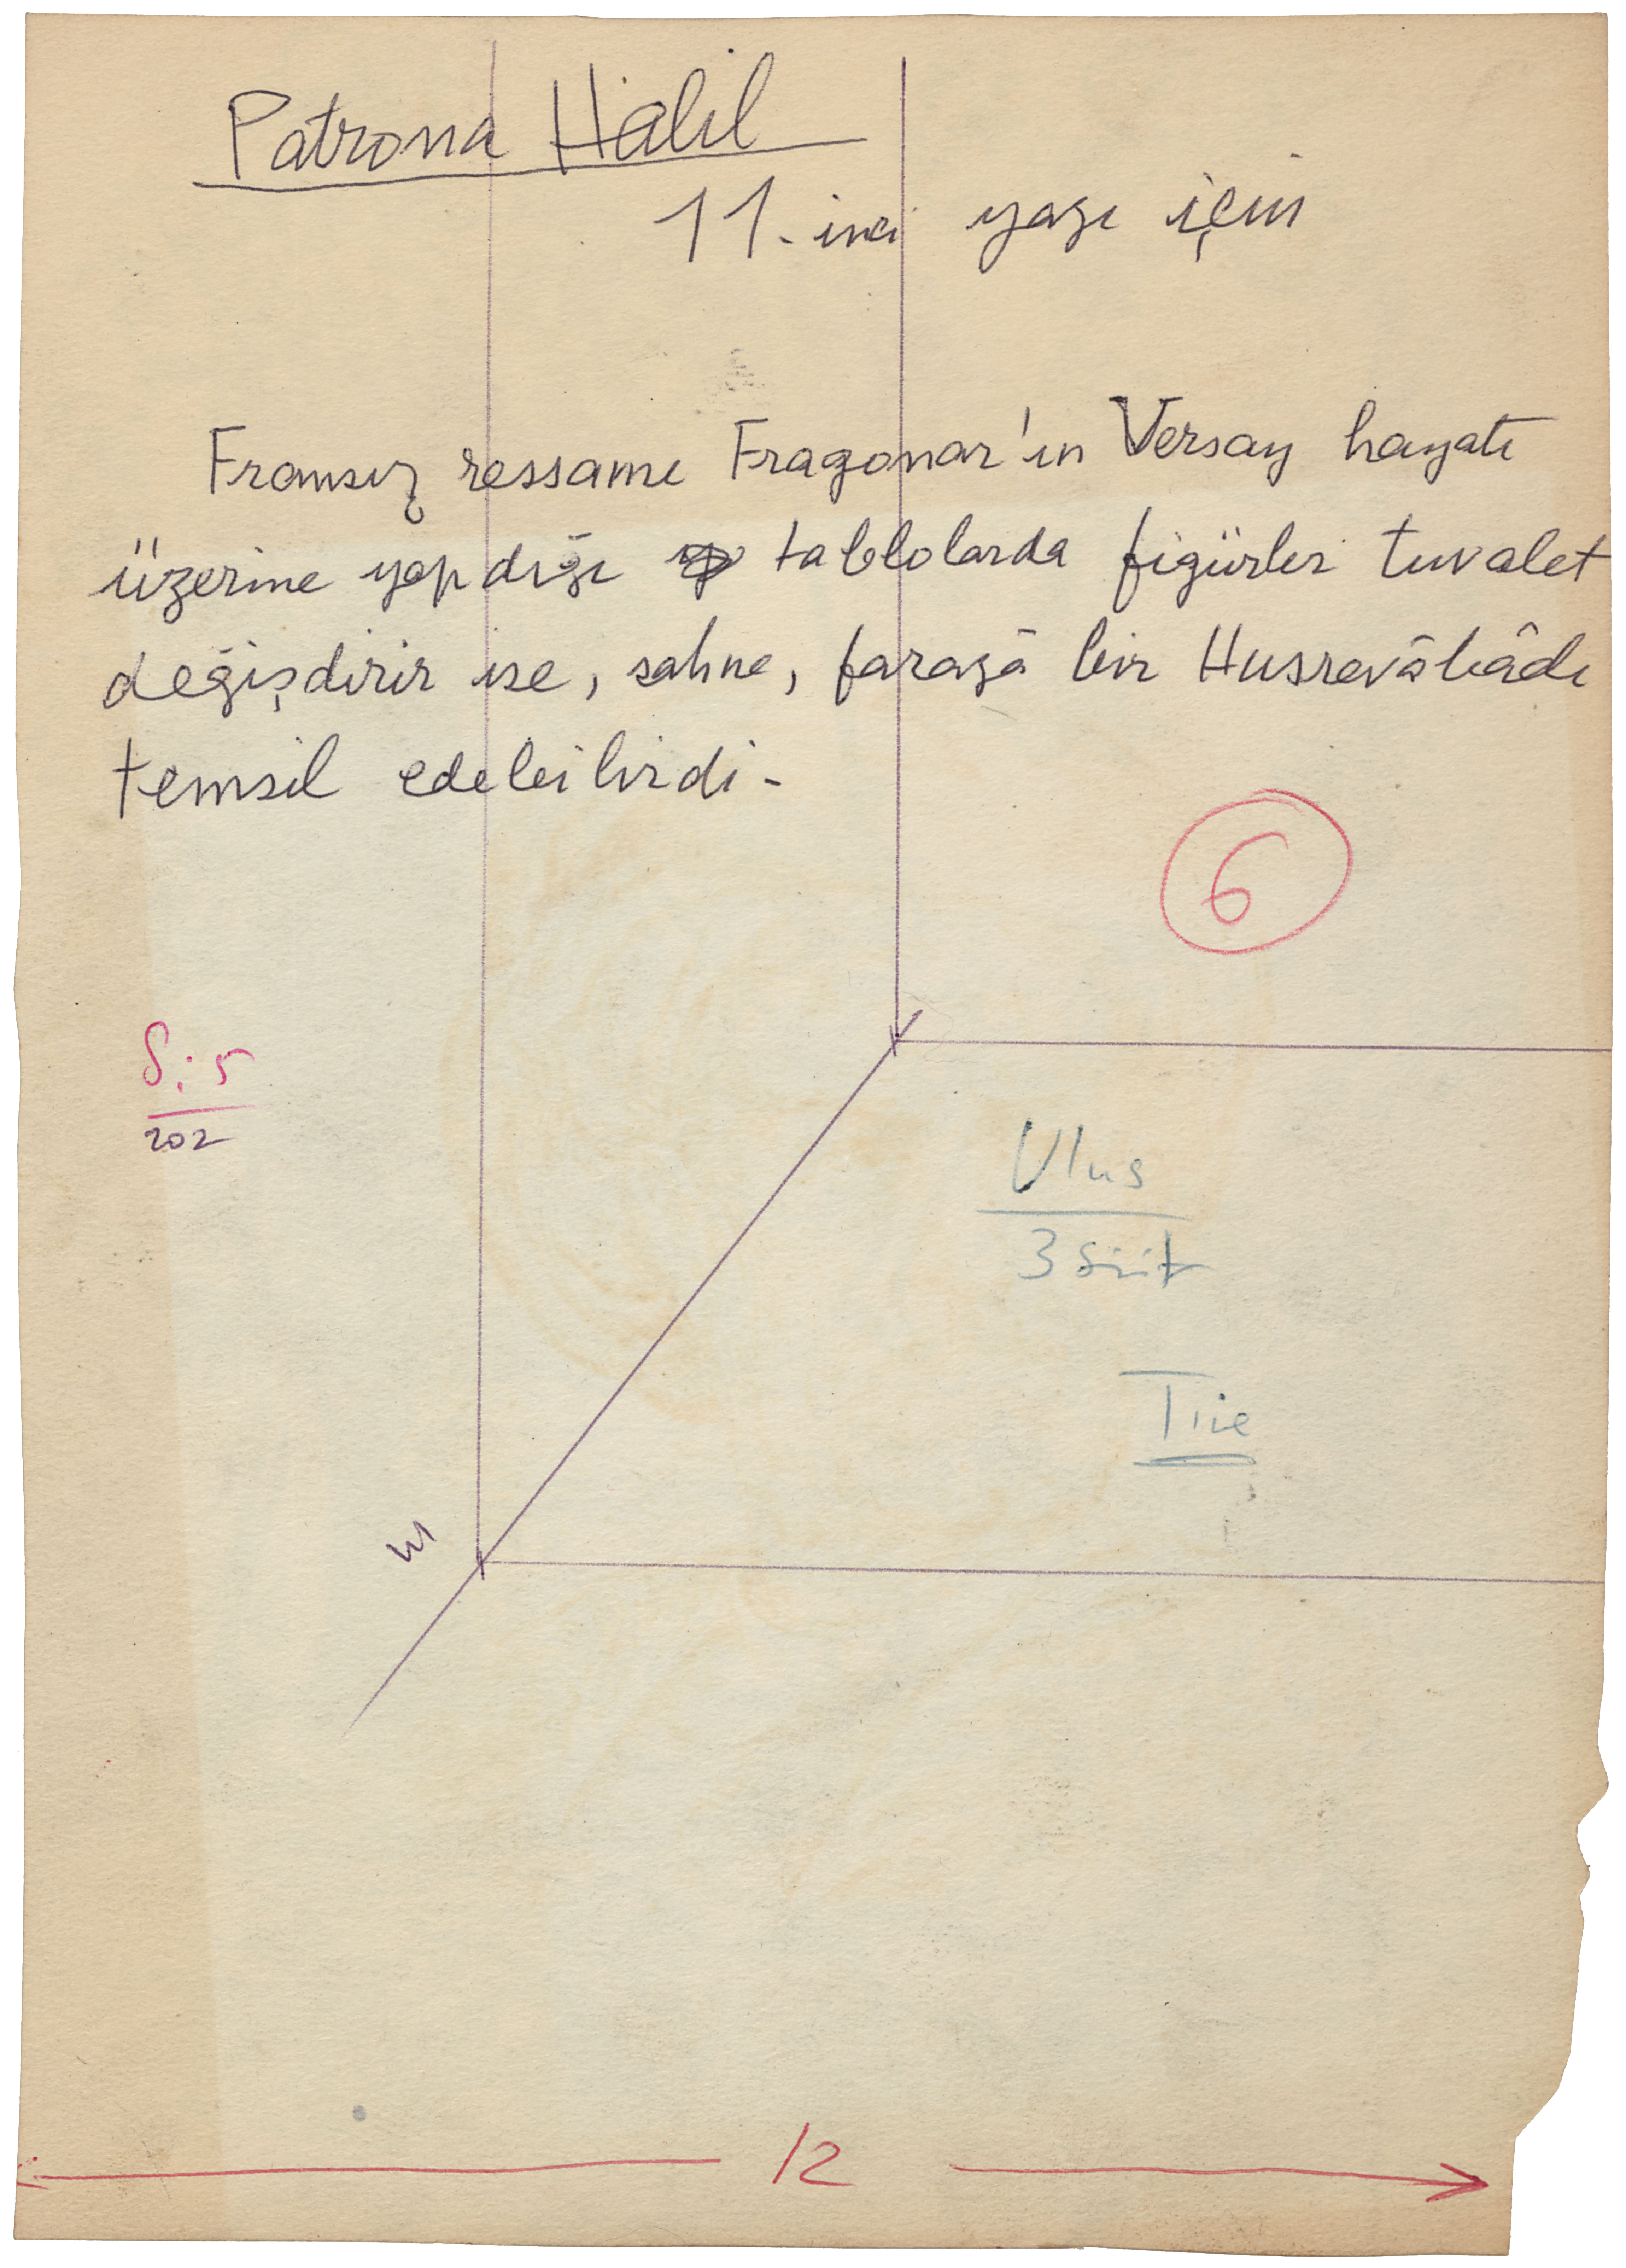 Patrona Halil
11. inci yazı için
Fransız ressamı Fragonar'ın Versay hayatı
üzerine yapdığı tablolarda figürler tuvalet
değişdirir ise, sahne, farazâ bir Husrevâbâdı
temsil edebilirdi.
6
S: 5
202
Ulus
3 süt
12